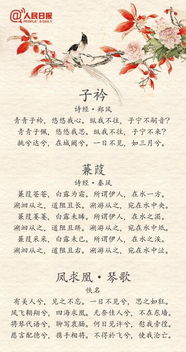 @人民日报
PEOPLE'S DAILY
子衿
诗经·郑风
青青子衿，悠悠我心。纵我不往，子宁不嗣音？
青青子佩，悠悠我思。纵我不往，子宁不来？
挑兮达兮，在城阙兮。一日不见，如三月兮。
蒹葭
诗经·秦风
蒹葭苍苍，白露为霜。所谓伊人，在水一方。
溯洄从之，道阻且长。溯游从之，宛在水中央。
蒹葭萋萋，白露未晞。所谓伊人，在水之湄。
溯洄从之，道阻且跻。溯游从之，宛在水中坻。
蒹葭采采，白露未已。所谓伊人，在水之涘。
溯洄从之，道阻且右。溯游从之，宛在水中沚。
凤求凰·琴歌
佚名
有美人兮，见之不忘。一日不见兮，思之如狂。
凤飞翱翔兮，四海求凰。无奈佳人兮，不在东墙。
将琴代语兮，聊写衷肠。何日见许兮，慰我彷徨。
愿言配德兮，携手相将。不得於飞兮，使我沦亡。